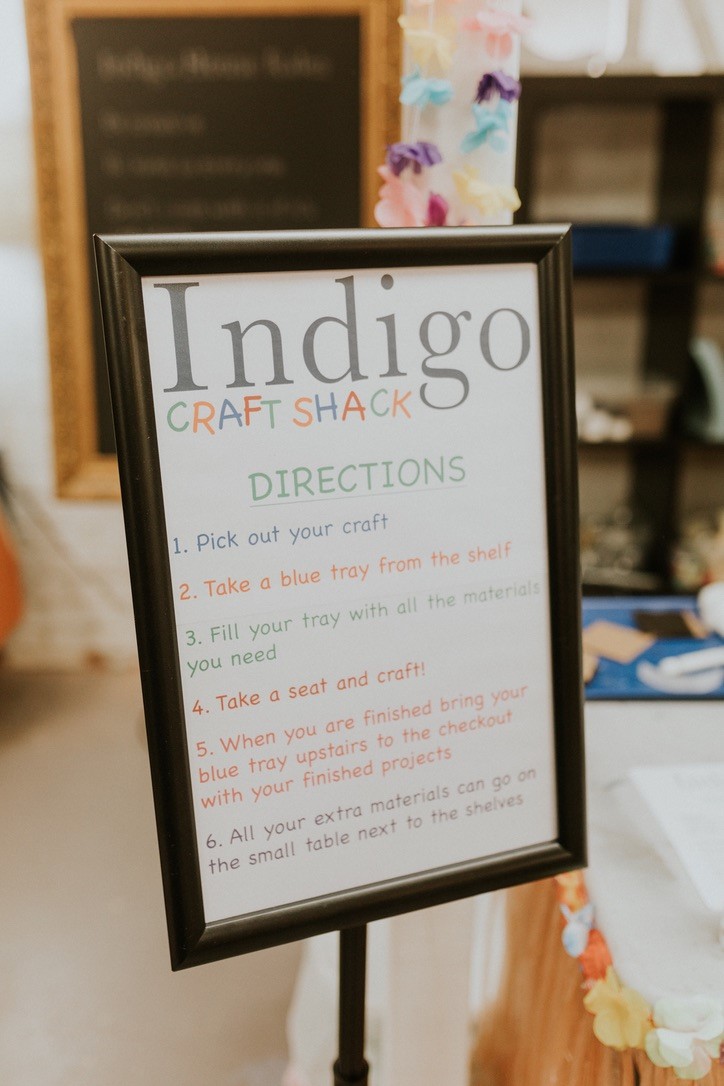 Indigo
CRAFT SHACK
DIRECTIONS
1. Pick out your craft
2. Take a blue tray from the shelf
3. Fill your tray with all the materials
you need
4. Take a seat and craft!
5. When you are finished bring your
blue tray upstairs to the checkout
with your finished projects
6. All your extra materials can go on
the small table next to the shelves